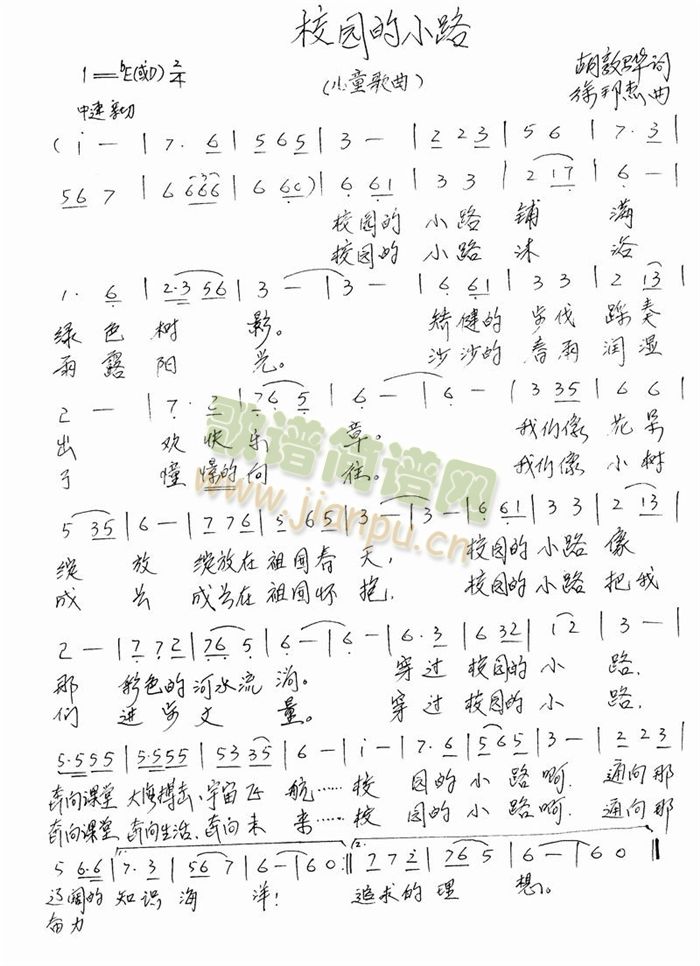 校园的小路
(儿童歌曲)
1=ᵇE(或D) 2/4
胡敦骅 词
徐邦杰 曲
中速 亲切
(i - | 7. 6 | 5 6 5 | 3 - | 2 2 3 | 5 6 | 7. 3 |
5 6 7 | 6 6 6 6 | 6 6 0) | 6 6 1 | 3 3 | 2 1 7 | 6 - |
校园的 小路 铺 满
校园的 小路 沐 浴
1. 6 | 2. 3 5 6 | 3 - | 3 - | 6 6 1 | 3 3 | 2 1 3 |
绿色树 影。 矫健的步伐踩奏
雨露阳 光。 沙沙的春雨润湿
2 - | 7. 2 | 7 6 5 | 6 - | 6 - | 3 3 5 | 6 6 |
出 欢快乐 章。 我们像 花朵
了 憧憬的向 往。 我们像 小树
5 3 5 | 6 - | 7 7 6 | 5 6 5 | 3 - | 3 - | 6 6 1 | 3 3 | 2 1 3 |
绽 放 绽放在祖国春天, 校园的小路像
成长 成长在祖国怀抱, 校园的小路把我
2 - | 7 7 2 | 7 6 5 | 6 - | 6 - | 6. 3 | 6 3 2 | i 2 | 3 - |
那 彩色的河水流淌。 穿过 校园的小 路,
们 进步丈 量。 穿过 校园的小 路,
5. 5 5 5 | 5. 5 5 5 | 5 3 3 5 | 6 - | i - | 7. 6 | 5 6 5 | 3 - | 2 2 3 |
奔向课堂 大海搏击、宇宙飞 航……校 园的小路啊, 通向那
奔向课堂、奔向生活、奔向未 来……校 园的小路啊, 通向那
5 6. 6 | 1. 7. 3 | 5 6 7 | 6 - | 6 0 :‖ 2. 7 7 2 | 7 6 5 | 6 - | 6 0 ‖
辽阔的 知识海 洋! 追求的理 想。
奋力
歌谱简谱网
www.jianpu.cn